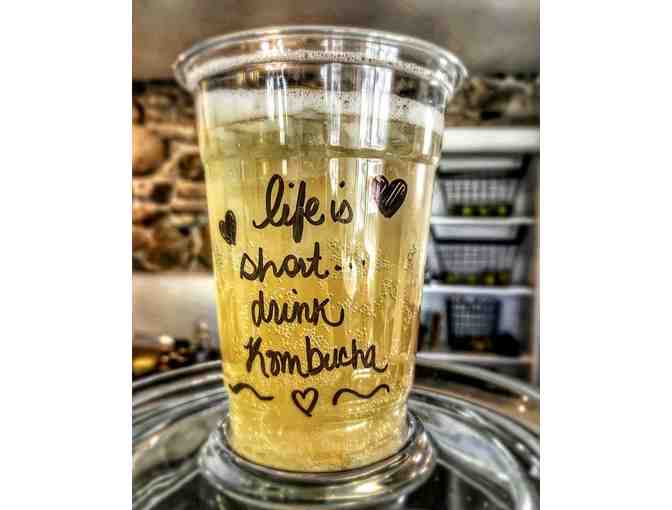 life is
short...
drink
Kombucha